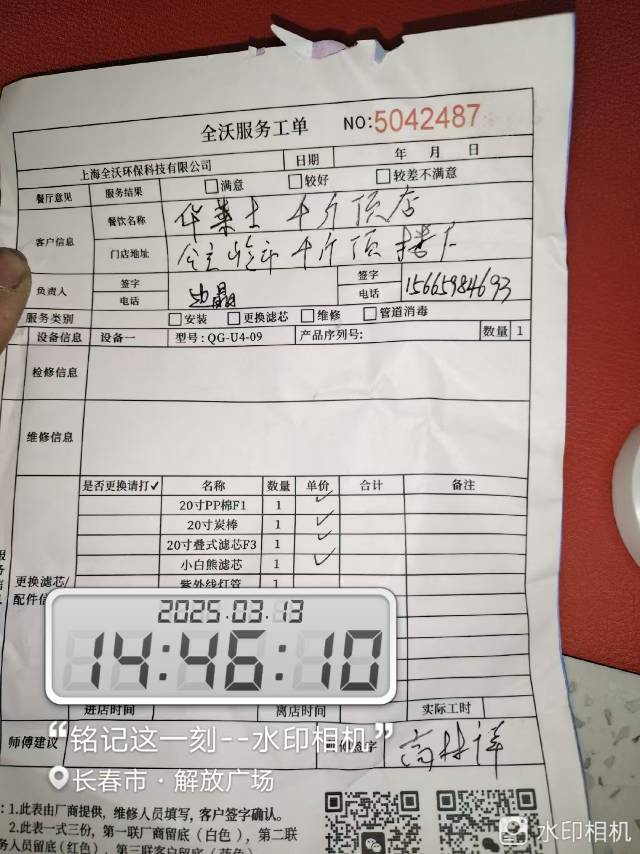 全沃服务工单 NO:5042487
上海全沃环保科技有限公司 日期 年 月 日
餐厅意见 服务结果 满意 较好 较差不满意
客户信息 餐饮名称 华莱士 千斤顶店
门店地址 公主岭市 千斤顶 楼下
负责人 签字 电话 签字 电话 15665984693
服务类别 安装 更换滤芯 维修 管道消毒
设备信息 设备一 型号:QG-U4-09 产品序列号: 数量 1
检修信息
维修信息
是否更换请打✓ 名称 数量 单价 合计 备注
20寸PP棉F1 1 ✓
20寸炭棒 1 ✓
20寸叠式滤芯F3 1 ✓
小白熊滤芯 1 ✓
更换滤芯/
配件信
紫外线灯管
2025.03.13
14:46:10
进店时间 离店时间 实际工时
师傅建议 签字
“铭记这一刻--水印相机”
长春市·解放广场
:1.此表由厂商提供，维修人员填写，客户签字确认。
2.此表一式三份，第一联厂商留底（白色），第二联
务人员留底(红色)、第三联客户留底（蓝色）
水印相机